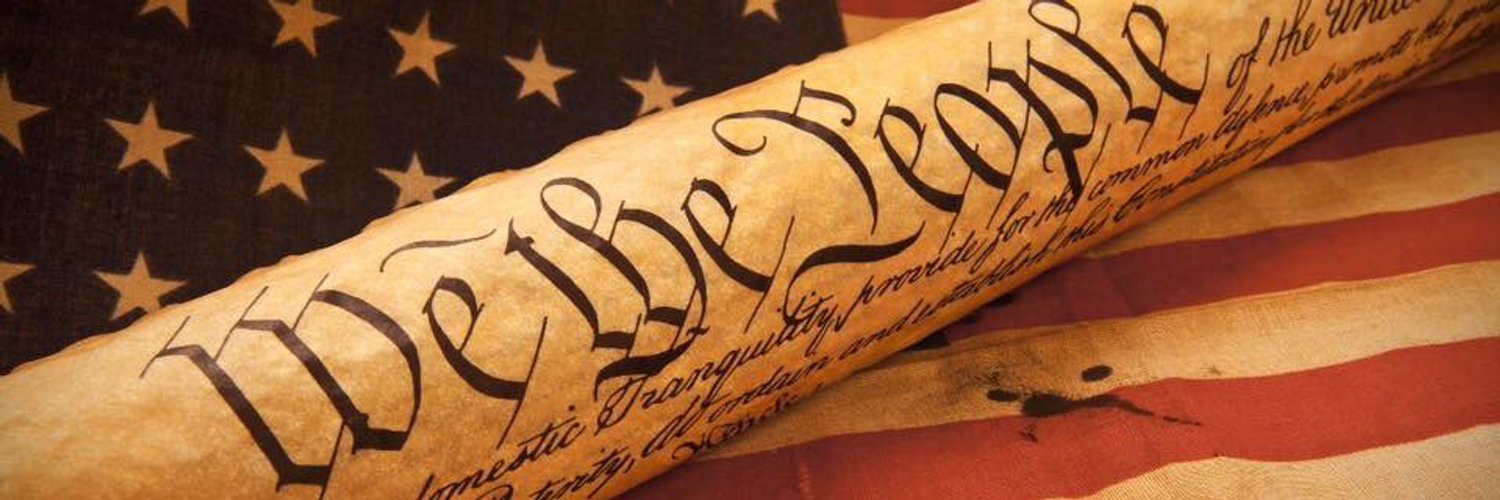 We the People of the United
domestic Tranquility, provide for the common defence, promote the
terity, do ordain and establish this Constitution